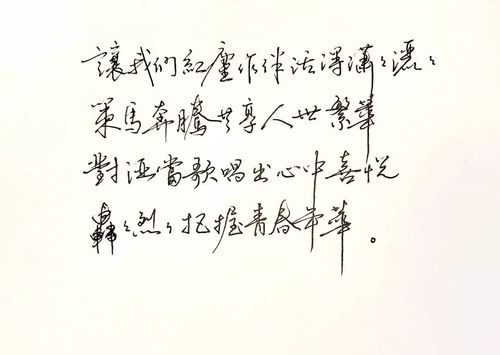 讓我們紅塵作伴活得瀟々灑々
策馬奔騰共享人世繁華
對酒當歌唱出心中喜悅
轟々烈々把握青春年華。